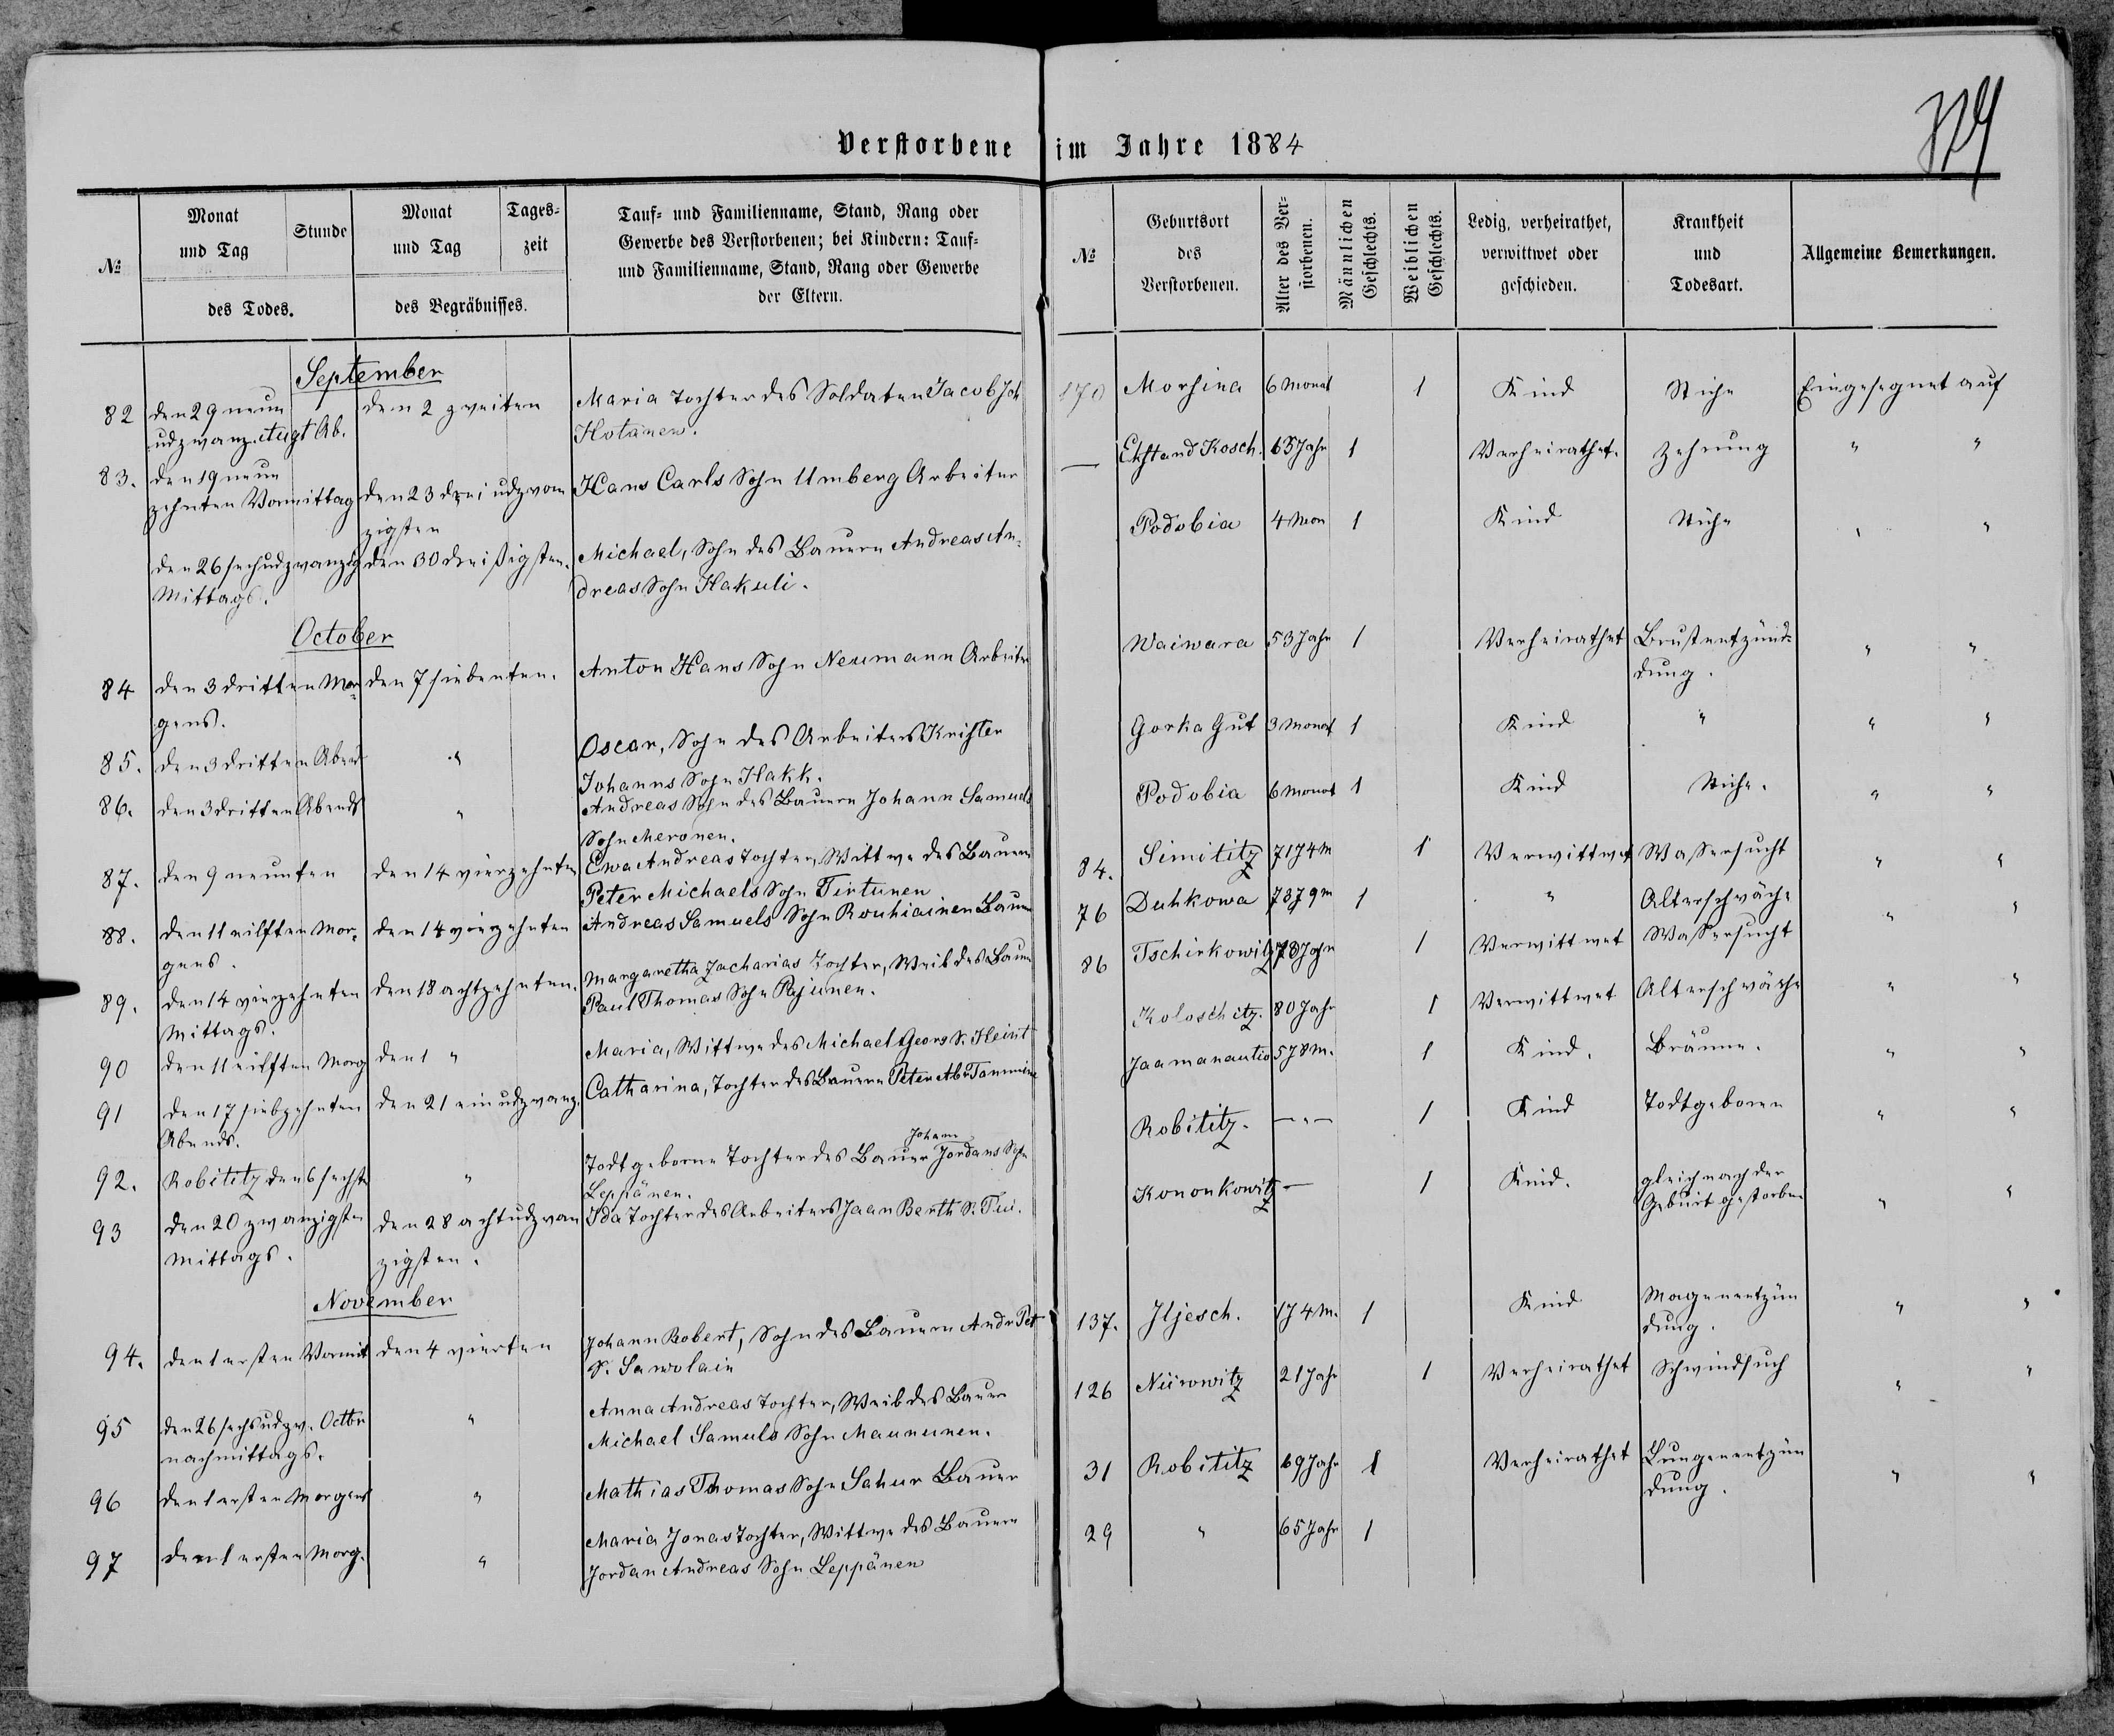 Verstorbene im Jahre 1884
№
Monat und Tag
Stunde
des Todes.
Monat und Tag
Tages-zeit
des Begräbnisses.
Tauf- und Familienname, Stand, Rang oder
Gewerbe des Verstorbenen; bei Kindern: Tauf-
und Familienname, Stand, Rang oder Gewerbe
der Eltern.
№
Geburtsort
des
Verstorbenen.
Alter des Ver-storbenen.
Männlichen Geschlechts.
Weiblichen Geschlechts.
Ledig, verheirathet,
verwittwet oder
geschieden.
Krankheit
und
Todesart.
Allgemeine Bemerkungen.
September
82 den 29 neun den 2 zweiten Maria Tochter des Soldaten Jacob Joh
Hotänen.
83. den 19 neun
zehnten Vormittag den 23 drei udzwan Hans Carls Sohn Umberg Arbeiter
zigsten
den 26 sechudzwanzig den 30 dreißigsten. Michael, Sohn des Bauern Andreas An-
Mittags. dreas Sohn Hakuli.
October
84 den 3 dritten Mor den 7 siebenten. Anton Hans Sohn Neumann Arbeiter
gens.
85. den 3 dritten Abend " Oscar, Sohn des Arbeiters Krister
Johanns Sohn Hakk.
86. den 3 dritten Abends " Andreas Sohn des Bauern Johann Samuels
Sohn Meronen.
87. den 9 neunten den 14 vierzehnten Ewa Andreas Tochter, Wittwe des Bauern
Peter Michaels Sohn Tirtunen
88. den 11 eilften Mor- den 14 vierzehnten Andreas Samuels Sohn Rouhiainen Bauer
gens.
89. den 14 vierzehnten den 18 achtzehnten. Margaretha Zacharias Tochter, Weib des Bauern
Mittags. Paul Thomas Sohn Pajunen.
90 den 11 eilften Morg den 1 " Maria, Wittwe des Michael Georg S. Heint
91 den 17 siebzehnten den 21 ein udzwanz. Catharina, Tochter des Bauern Peter Abr Tammine
Abends.
Johann
92. Robititz den 6 sechste " Todtgeborne Tochter des Bauer Jordans Sohn
Leppänen.
93 den 20 zwanzigsten den 28 achtudzwan Ida Tochter des Arbeiters Jaan Berth S. Tui.
Mittags. zigsten.
November
94. den 1 ersten Vormit den 4 vierten Johann Robert, Sohn des Bauern Andr Pet
S. Sawolain
95 den 26 sechsudzw. Octbr " Anna Andreas Tochter, Weib des Bauern
nachmittags. Michael Samuls Sohn Maununen.
96 den 1 ersten Morgens " Mathias Thomas Sohn Sahur Bauer
97 den 1 ersten Morg. " Maria Jonas Tochter, Wittwe des Bauern
Jordan Andreas Sohn Leppänen
170 Morsina 6 Monat 1 Kind Stiche Eingesegnet auf
— Ehstand Kosch. 65 Jahr 1 Verheirathet. Zehrung " "
Podobia 4 Mon 1 Kind Stiche " "
Waiwara 53 Jahr 1 Verheirathet Brustentzünd- " "
dung.
Gorka Gut 3 Monat 1 Kind " " "
Podobia 6 Monat 1 Kind Stiche. " "
84. Simititz 71 J 4 m 1 Verwittwet Wassersucht " "
76 Duhkowa 73 J 9 m 1 " Altersschwäche " "
86 Tschirkowitz 73 Jahr 1 Verwittwet Wassersucht
Koloschitz. 80 Jahr 1 Verwittwet Altersschwäche " "
Jaamanautio 5 J 8 m. 1 Kind. Bräune. " "
Robititz. — " — 1 Kind Todtgeboren " "
Kononkowitz — 1 Kind. gleich nach der
Geburt gestorben " "
137. Iljesch. 1 J 4 M. 1 Kind Magenentzün " "
dung.
126 Nürowitz 21 Jahr 1 Verheirathet Schwindsuch " "
31 Robititz 69 Jahr 1 Verheirathet Lungenentzün
dung. " "
29 " 65 Jahr 1